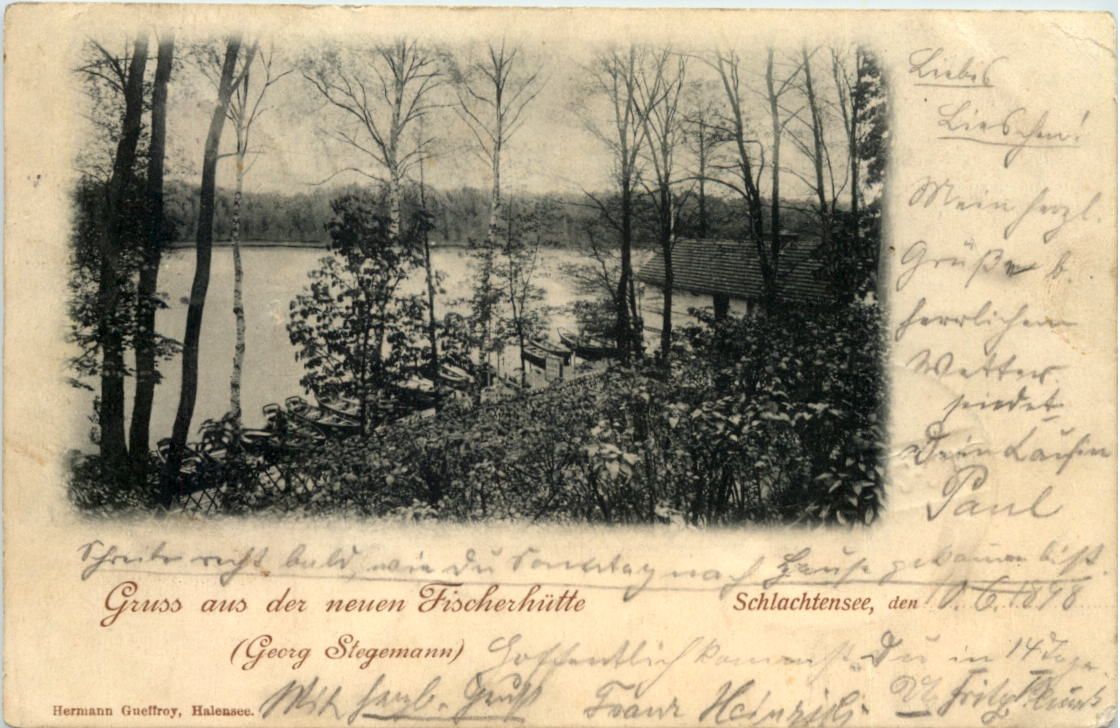 Liebes
Lieschen!
Mein herzl.
Grüße b.
herrlichem
Wetter
sendet
Dein
Paul
Schreibe recht bald, wie du Sonntag nach Hause gekommen bist.
Gruss aus der neuen Fischerhütte
Schlachtensee, den 10.6.1898
(Georg Stegemann)
Hoffentlich kommst Du in 14 Tage
Mit herzl. Gruß Franz
Fritz
Hermann Gueffroy, Halensee.